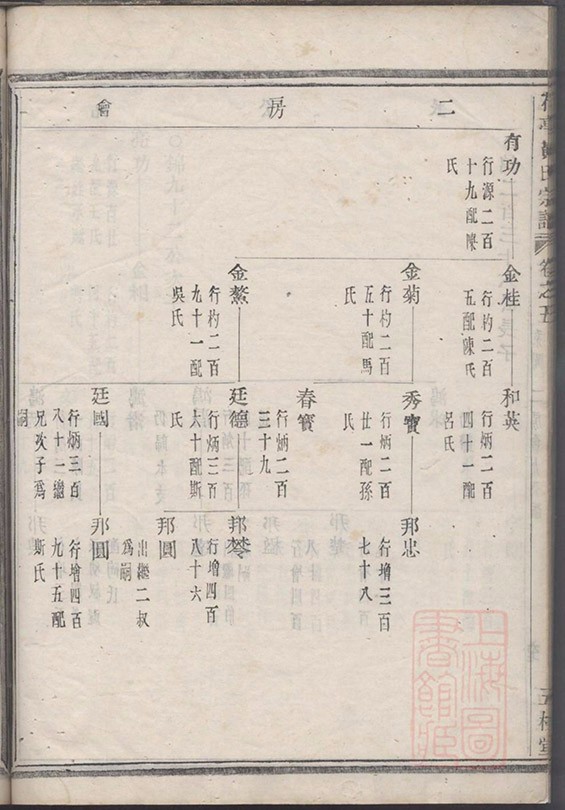 二房會
有功
行源二百
十九配陳
氏
金桂
行杓二百
五配陳氏
金菊
行杓二百
五十配馬
氏
金鰲
行杓二百
九十一配
吳氏
和英
行炳二百
四十一配
呂氏
秀寶
行炳二百
廿一配孫
氏
春寶
行炳二百
三十九
廷德
行炳三百
六十配斯
氏
廷國
行炳三百
八十一繼
兄次子為
嗣
邦忠
行增三百
七十八
邦琴
行增四百
八十六
邦圓
出繼二叔
為嗣
邦圓
行增四百
九十五配
斯氏
黃氏宗譜
卷之五
五桂堂
上海圖
書館藏